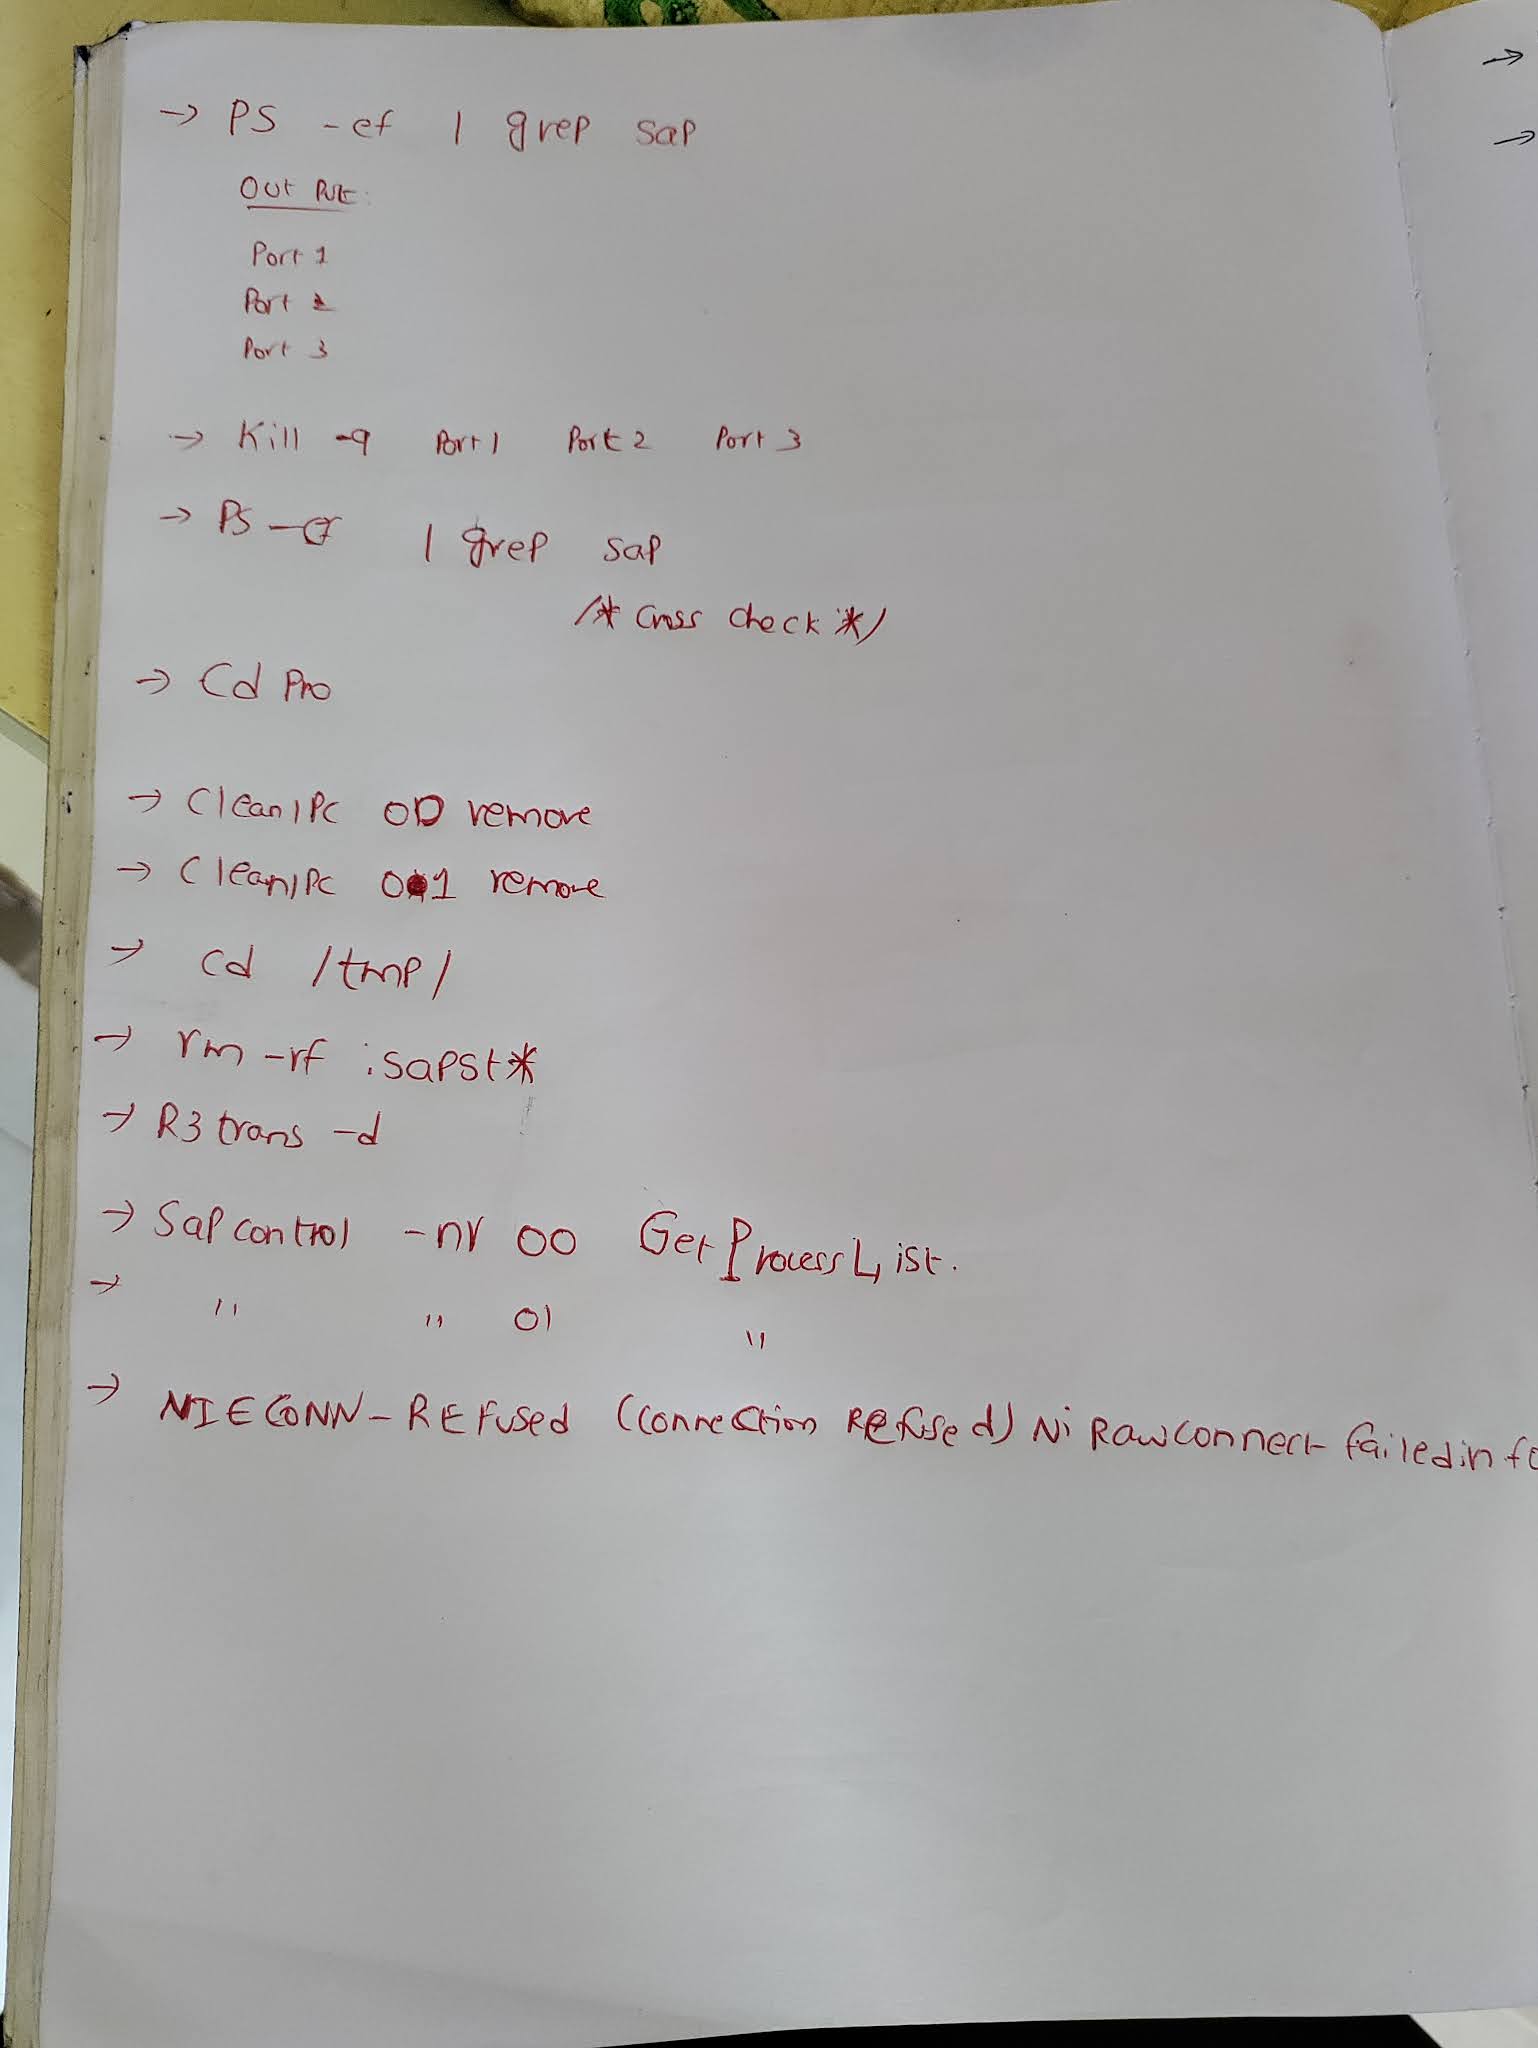 → PS -ef | grep sap
Out Put:
Port 1
Port 2
Port 3
→ Kill -9 Port 1 Port 2 Port 3
→ PS -ef | grep sap
/* Cross check */
→ Cd Pro
→ CleanIPC 00 remove
→ CleanIPC 01 remove
→ cd /tmp/
→ rm -rf .sapst*
→ R3trans -d
→ Sapcontrol -nr 00 GetProcessList.
→ " " 01 "
→ NIECONN-REFused (Connection Refused) Ni RawConnect failed in fc